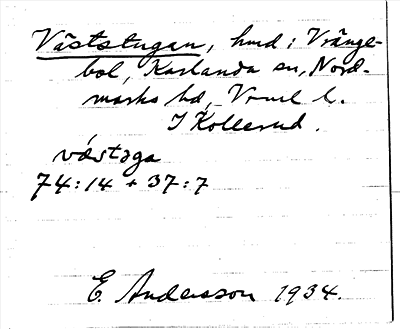 Väststugan, hmd i Vränge-
bol, Karlanda sn, Nord-
marks hd, Vrml l.
I Kollerud.
västəga
74:14 + 37:7
E. Andersson 1934.